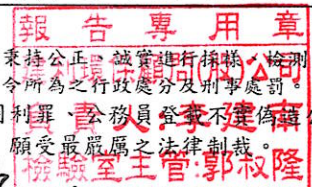 報告專用章
秉持公正、誠實進行採樣、檢測
令所為之行政處分及刑事處罰。
環 顧問(股)公司
利罪、公務員登載不實偽造公
負責人:李建
願受最嚴厲之法律制裁。
檢驗室主管:郭叔隆